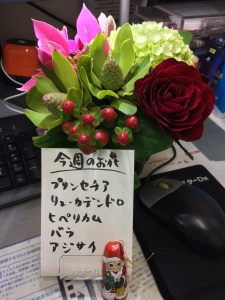 今週のお花
プリンセチア
リューカデンドロ
ヒペリカム
バラ
アジサイ